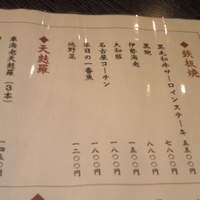 ◆鉄板焼
黒毛和牛サーロインステーキ 五五〇〇円
黒鮑 七八〇〇円
伊勢海老
大和豚 一八〇〇円
名古屋コーチン 一八〇〇円
本日の一番魚 一八〇〇円
焼野菜 一二〇〇円
◆天麩羅
車海老天麩羅(3本)